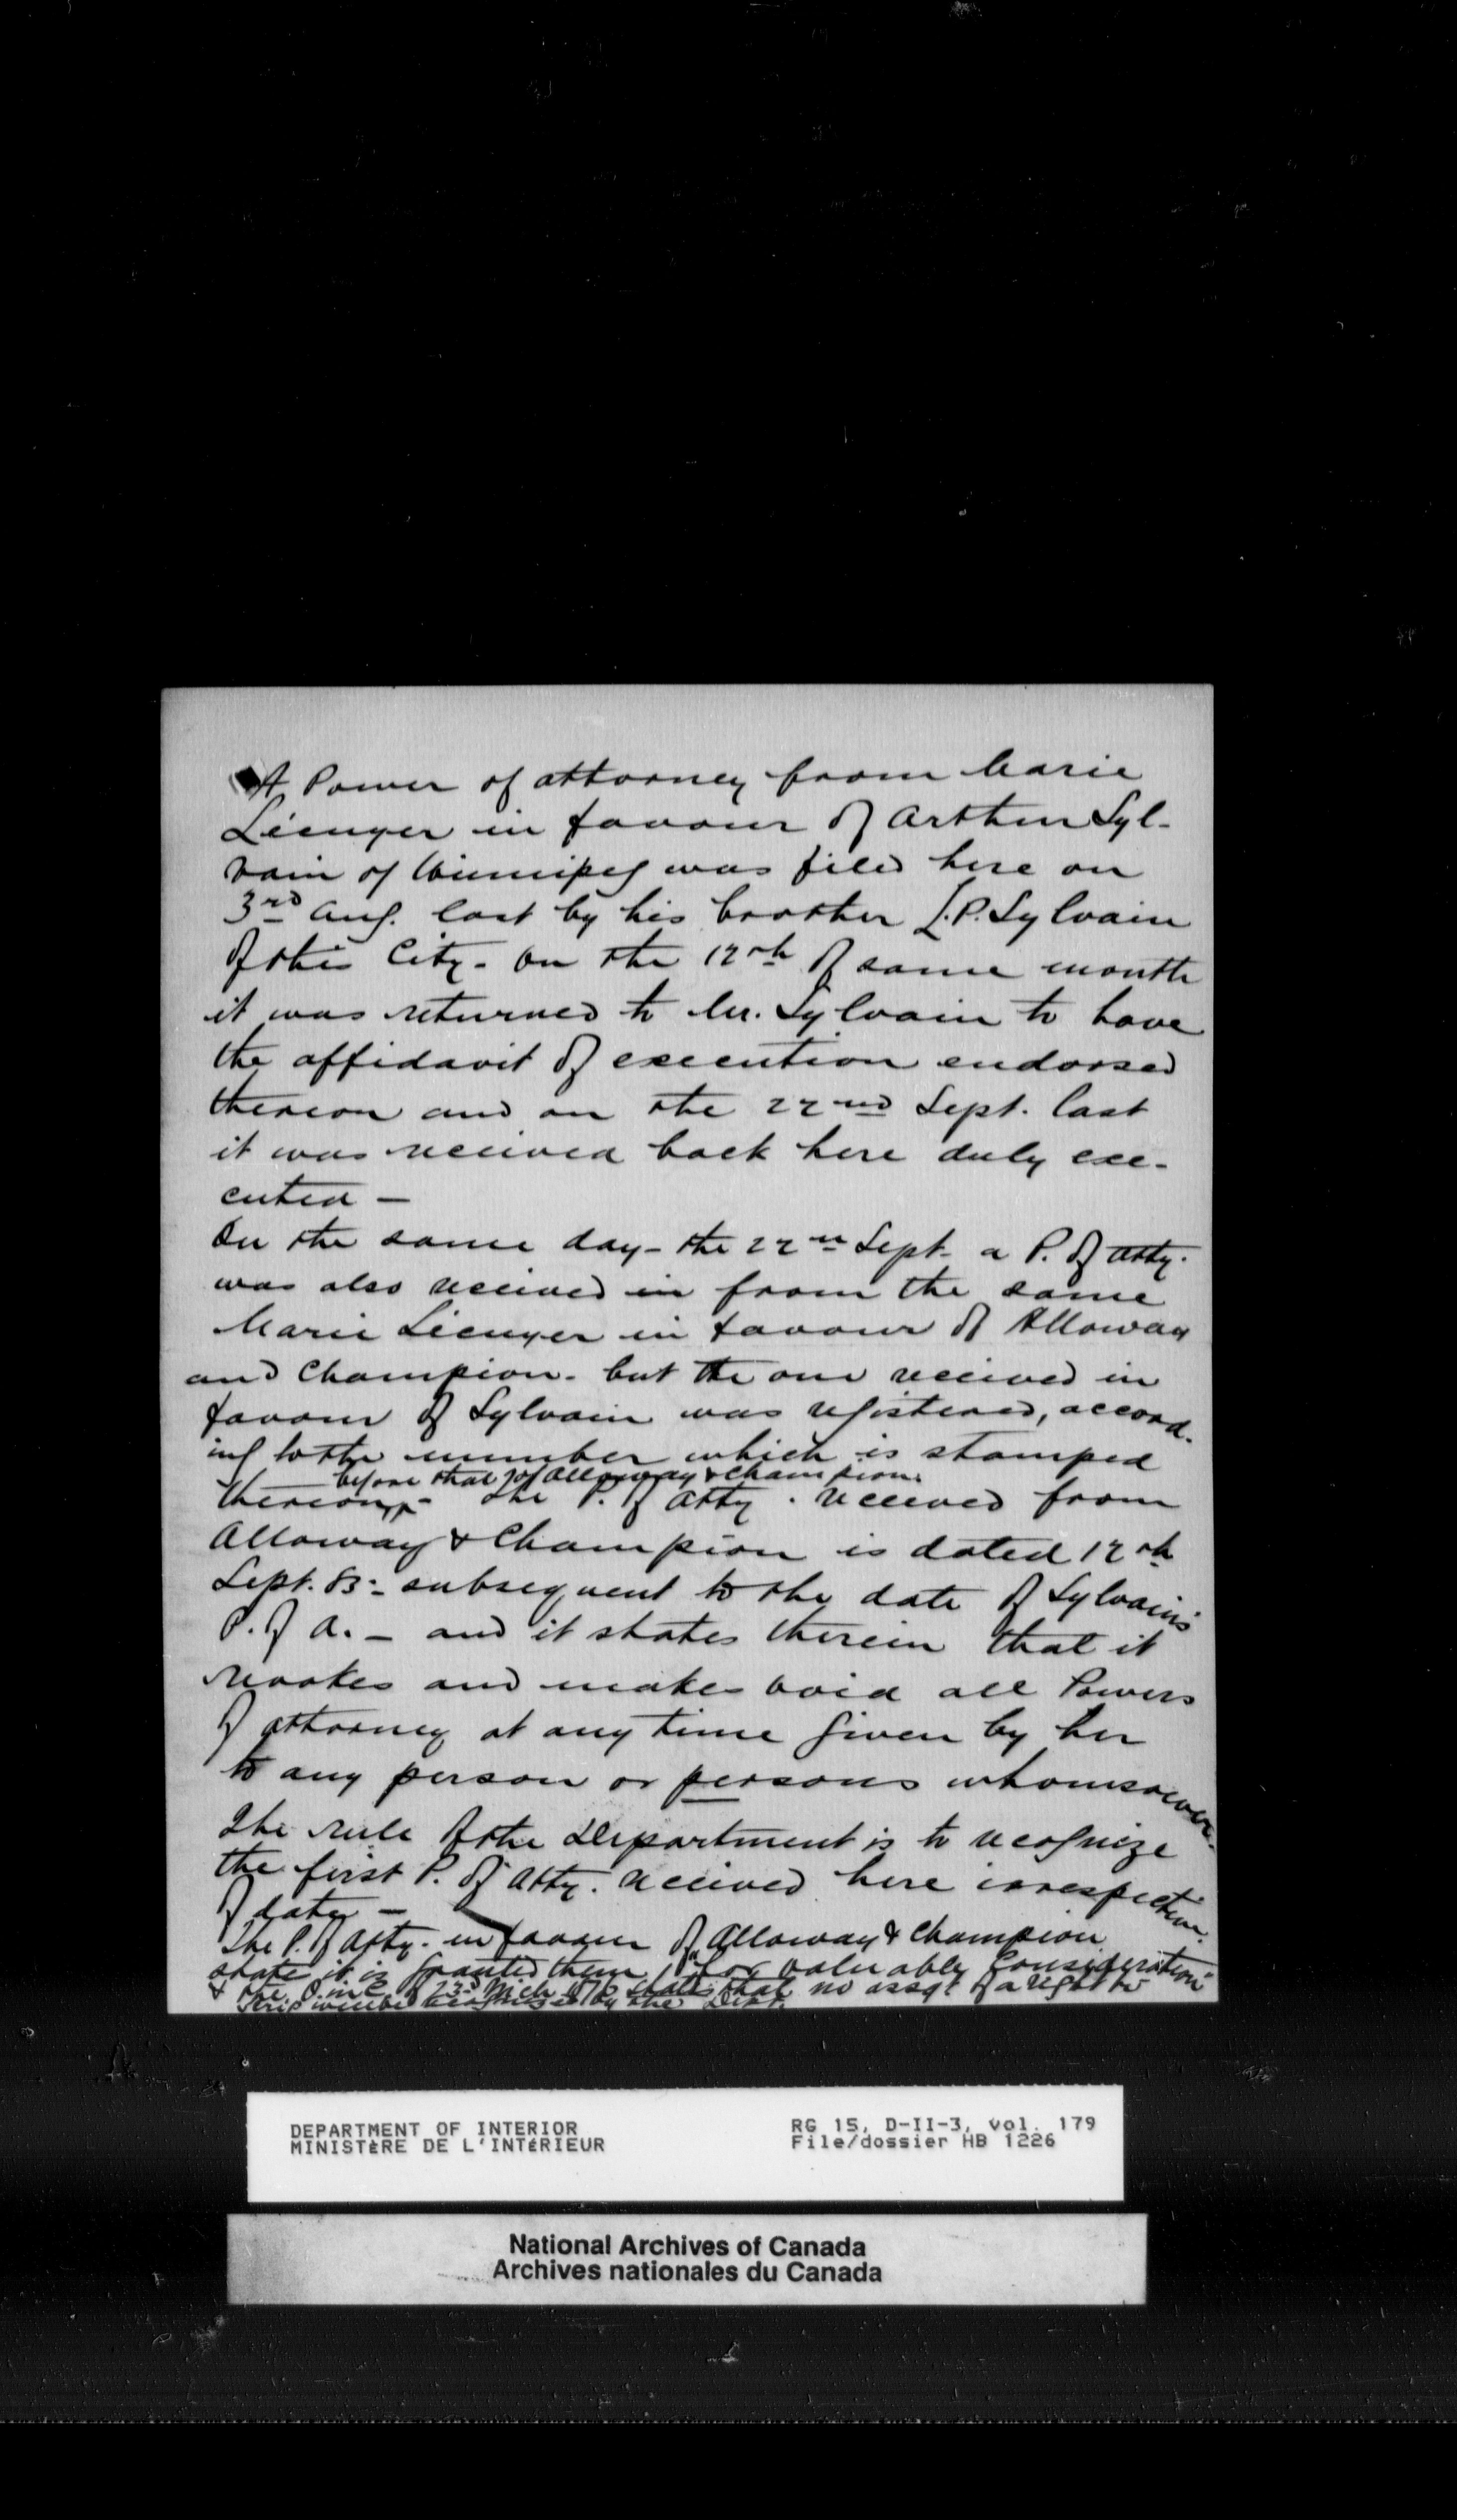 A Power of attorney from Marie
Lienyer in favour of Arthur Syl-
vain of Winnipeg was filed here on
3rd Aug. last by his brother L.P. Sylvain
of this City - On the 12th of same month
it was returned to Mr. Sylvain to have
the affidavit of execution endorsed
thereon and on the 22nd Sept. last
it was received back here duly exe-
cuted —
On the same day - the 22nd Sept - a P. of Atty.
was also received in from the same
Marie Lienyer in favour of Alloway
and Champion - but the one received in
favour of Sylvain was registered, accord-
ing to the number which is stamped
before that of Alloway & Champion.
thereon - The P. of Atty. received from
Alloway & Champion is dated 12th
Sept. 83 - subsequent to the date of Sylvain's
P. of A. - and it states therein that it
revokes and makes void all Powers
of attorney at any time given by her
to any person or persons whomsoever.
The rule of the Department is to recognize
the first P. of Atty. received here irrespective
of date —
The P. of Atty. in favour of Alloway & Champion
state it is granted them "for valuable consideration"
& the O. in C. of 23rd Mch 1876 states that no assgt of a right to
Scrip will be recognized by the Dept.
DEPARTMENT OF INTERIOR
MINISTÈRE DE L'INTÉRIEUR
RG 15, D-II-3, vol. 179
File/dossier HB 1226
National Archives of Canada
Archives nationales du Canada